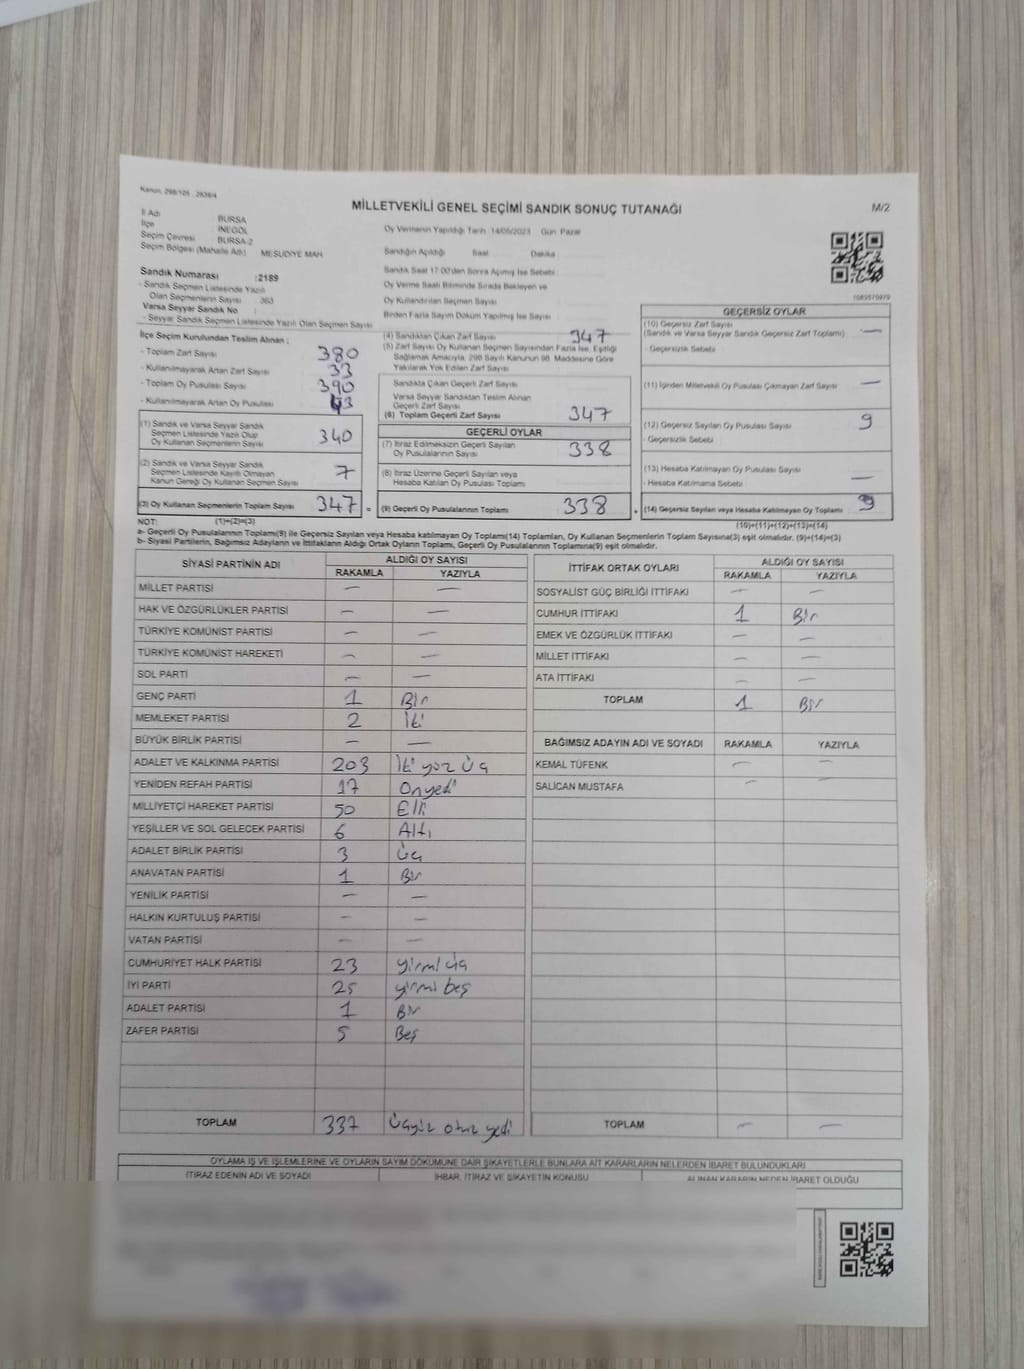 Kanun, 298/105 , 2839/4
MİLLETVEKİLİ GENEL SEÇİMİ SANDIK SONUÇ TUTANAĞI
M/2
İl Adı : BURSA
İlçe : İNEGÖL
Seçim Çevresi : BURSA-2
Seçim Bölgesi (Mahalle Adı) : MESUDİYE MAH
Sandık Numarası : 2189
- Sandık Seçmen Listesinde Yazılı
Olan Seçmenlerin Sayısı : 363
Varsa Seyyar Sandık No :
- Seyyar Sandık Seçmen Listesinde Yazılı Olan Seçmen Sayısı
Oy Vermenin Yapıldığı Tarih :14/05/2023 Gün: Pazar
Sandığın Açıldığı Saat Dakika
Sandık Saat 17:00'den Sonra Açılmış İse Sebebi :
Oy Verme Saati Bitiminde Sırada Bekleyen ve
Oy Kullandırılan Seçmen Sayısı
Birden Fazla Sayım Döküm Yapılmış İse Sayısı :
İlçe Seçim Kurulundan Teslim Alınan ;
- Toplam Zarf Sayısı 380
- Kullanılmayarak Artan Zarf Sayısı 33
- Toplam Oy Pusulası Sayısı 390
- Kullanılmayarak Artan Oy Pusulası 43
(1) Sandık ve Varsa Seyyar Sandık
Seçmen Listesinde Yazılı Olup
Oy Kullanan Seçmenlerin Sayısı 340
(2) Sandık ve Varsa Seyyar Sandık
Seçmen Listesinde Kayıtlı Olmayan
Kanun Gereği Oy Kullanan Seçmen Sayısı 7
(3) Oy Kullanan Seçmenlerin Toplam Sayısı 347 =
(4) Sandıktan Çıkan Zarf Sayısı 347
(5) Zarf Sayısı Oy Kullanan Seçmen Sayısından Fazla İse, Eşitliği
Sağlamak Amacıyla, 298 Sayılı Kanunun 98. Maddesine Göre
Yakılarak Yok Edilen Zarf Sayısı
Sandıkta Çıkan Geçerli Zarf Sayısı
Varsa Seyyar Sandıktan Teslim Alınan
Geçerli Zarf Sayısı
(6) Toplam Geçerli Zarf Sayısı 347
GEÇERLİ OYLAR
(7) İtiraz Edilmeksizin Geçerli Sayılan
Oy Pusulalarının Sayısı 338
(8) İtiraz Üzerine Geçerli Sayılan veya
Hesaba Katılan Oy Pusulası Toplamı
(9) Geçerli Oy Pusulalarının Toplamı 338 +
GEÇERSİZ OYLAR
(10) Geçersiz Zarf Sayısı
(Sandık ve Varsa Seyyar Sandık Geçersiz Zarf Toplamı) —
- Geçersizlik Sebebi :
(11) İçinden Milletvekili Oy Pusulası Çıkmayan Zarf Sayısı —
(12) Geçersiz Sayılan Oy Pusulası Sayısı 9
- Geçersizlik Sebebi :
(13) Hesaba Katılmayan Oy Pusulası Sayısı —
- Hesaba Katılmama Sebebi :
(14) Geçersiz Sayılan veya Hesaba Katılmayan Oy Toplamı 9
NOT: (1)+(2)=(3) (10)+(11)+(12)+(13)=(14)
a- Geçerli Oy Pusulalarının Toplamı(9) ile Geçersiz Sayılan veya Hesaba katılmayan Oy Toplamı(14) Toplamları, Oy Kullanan Seçmenlerin Toplam Sayısına(3) eşit olmalıdır. (9)+(14)=(3)
b- Siyasi Partilerin, Bağımsız Adayların ve İttifakların Aldığı Ortak Oyların Toplamı, Geçerli Oy Pusulalarının Toplamına(9) eşit olmalıdır.
SİYASİ PARTİNİN ADI ALDIĞI OY SAYISI
RAKAMLA YAZIYLA
MİLLET PARTİSİ — —
HAK VE ÖZGÜRLÜKLER PARTİSİ — —
TÜRKİYE KOMÜNİST PARTİSİ — —
TÜRKİYE KOMÜNİST HAREKETİ — —
SOL PARTİ — —
GENÇ PARTİ 1 Bir
MEMLEKET PARTİSİ 2 İki
BÜYÜK BİRLİK PARTİSİ — —
ADALET VE KALKINMA PARTİSİ 203 İki yüz üç
YENİDEN REFAH PARTİSİ 17 Onyedi
MİLLİYETÇİ HAREKET PARTİSİ 50 Elli
YEŞİLLER VE SOL GELECEK PARTİSİ 6 Altı
ADALET BİRLİK PARTİSİ 3 Üç
ANAVATAN PARTİSİ 1 Bir
YENİLİK PARTİSİ — —
HALKIN KURTULUŞ PARTİSİ — —
VATAN PARTİSİ — —
CUMHURİYET HALK PARTİSİ 23 yirmi üç
İYİ PARTİ 25 yirmi beş
ADALET PARTİSİ 1 Bir
ZAFER PARTİSİ 5 Beş
TOPLAM 337 Üçyüz otuz yedi
İTTİFAK ORTAK OYLARI ALDIĞI OY SAYISI
RAKAMLA YAZIYLA
SOSYALİST GÜÇ BİRLİĞİ İTTİFAKI — —
CUMHUR İTTİFAKI 1 Bir
EMEK VE ÖZGÜRLÜK İTTİFAKI — —
MİLLET İTTİFAKI — —
ATA İTTİFAKI — —
TOPLAM 1 Bir
BAĞIMSIZ ADAYIN ADI VE SOYADI RAKAMLA YAZIYLA
KEMAL TÜFENK — —
SALİCAN MUSTAFA — —
TOPLAM — —
OYLAMA İŞ VE İŞLEMLERİNE VE OYLARIN SAYIM DÖKÜMÜNE DAİR ŞİKAYETLERLE BUNLARA AİT KARARLARIN NELERDEN İBARET BULUNDUKLARI
İTİRAZ EDENİN ADI VE SOYADI İHBAR, İTİRAZ VE ŞİKAYETİN KONUSU ALINAN KARARIN NEDEN İBARET OLDUĞU